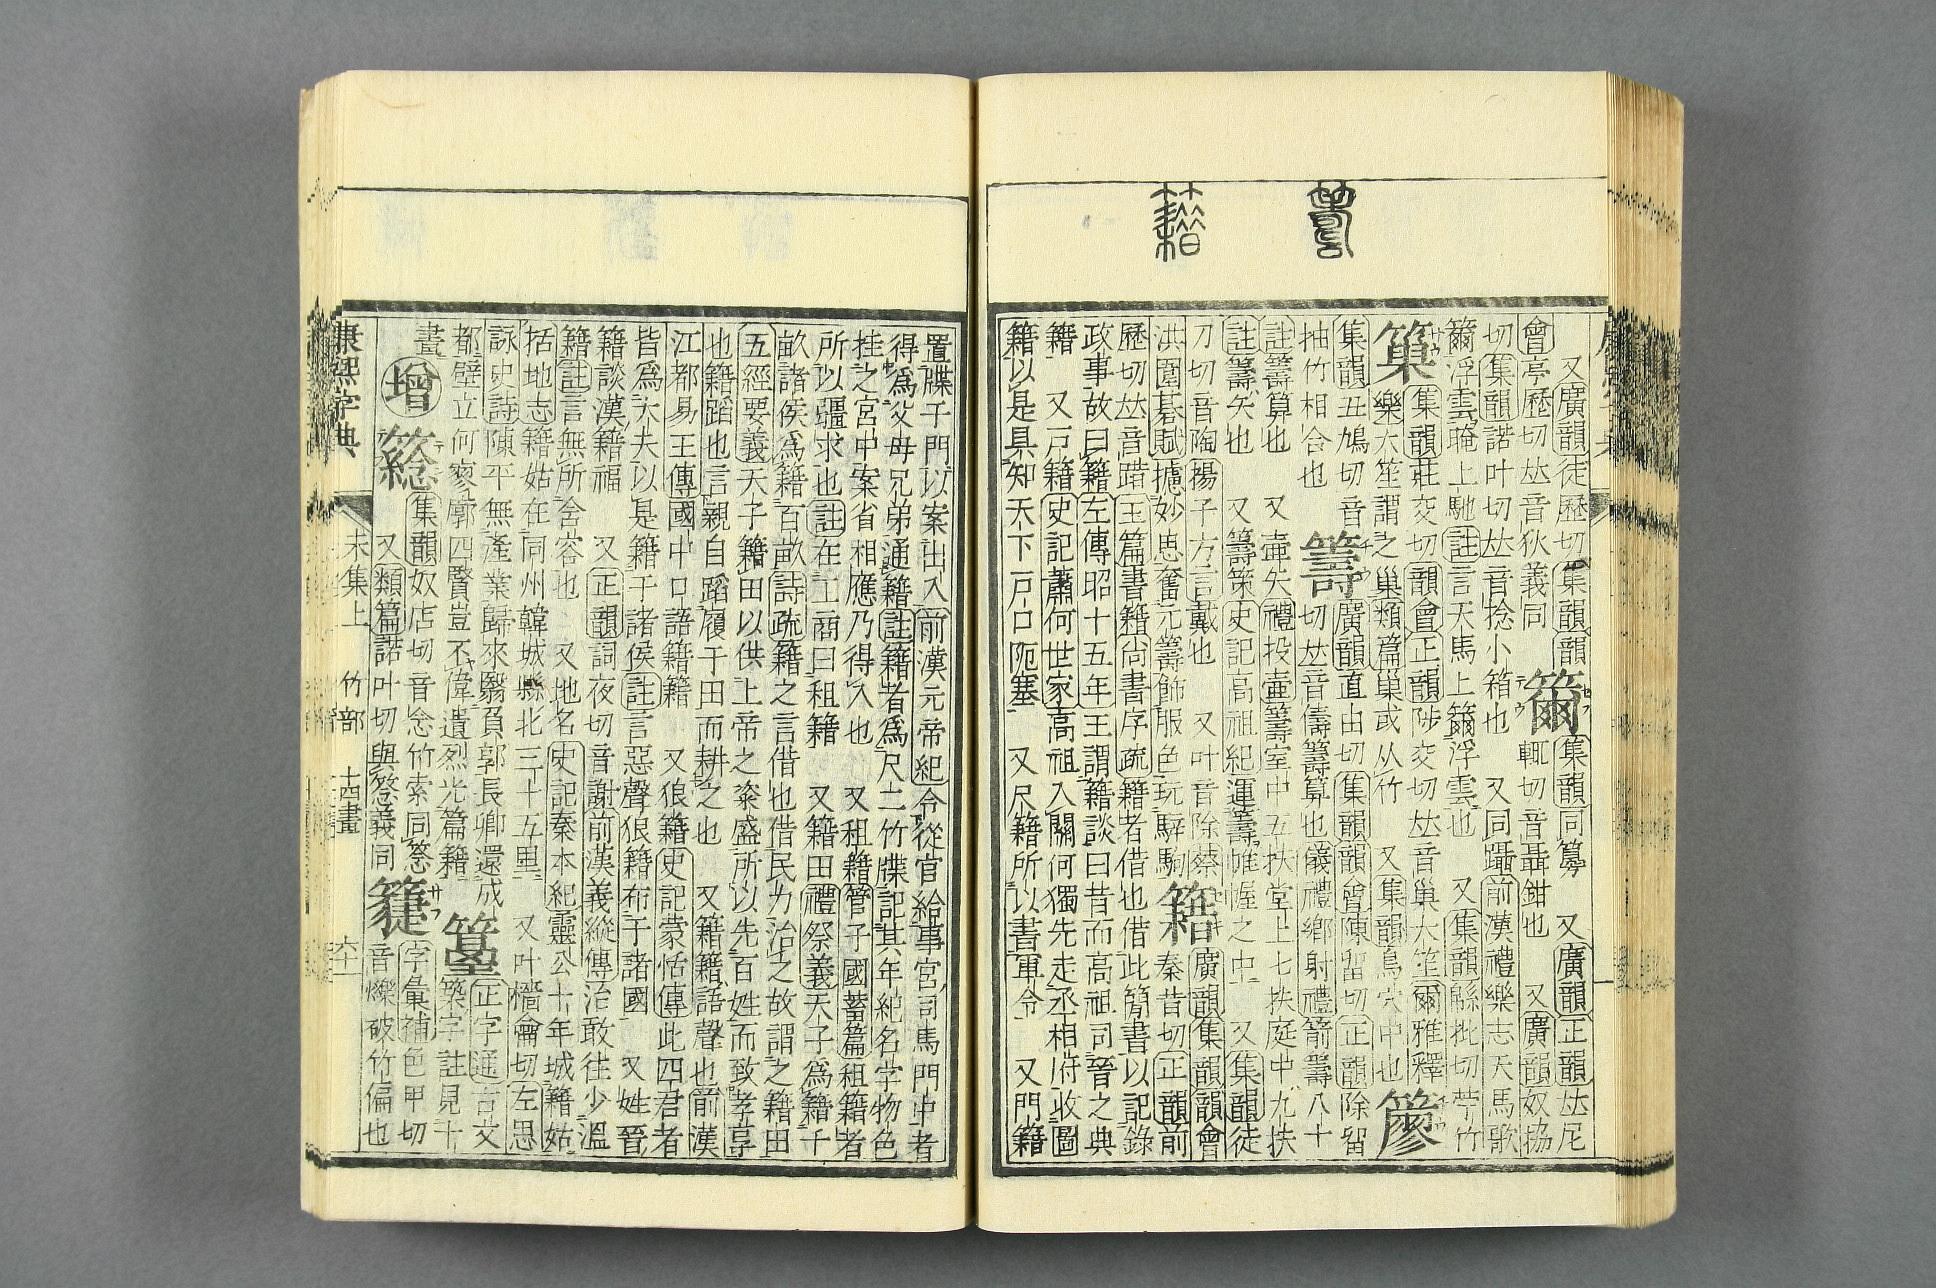 又廣韻徒歷切集韻韻
會亭歷切𠀤音狄義同
籋
集韻同篣 又廣韻正韻𠀤尼
輒切音聶鉗也 又廣韻奴協
切集韻諾叶切𠀤音捻小箱也 又同躡前漢禮樂志天馬歌
籋浮雲晻上馳註言天馬上籋浮雲也 又集韻緜批切竻竹
籱
集韻莊交切韻會正韻陟交切𠀤音巢大笙爾雅釋
樂大笙謂之巢類篇巢或从竹 又集韻鳥穴中也
篸
集韻丑鳩切音
抽竹相合也
籌
廣韻直由切集韻韻會陳留切正韻除留
切𠀤音儔籌算也儀禮鄉射禮箭籌八十
註籌算也 又壷矢禮投壷籌室中五扶堂上七扶庭中九扶
註籌矢也 又籌策史記高祖紀運籌帷幄之中 又集韻徒
刀切音陶揚子方言戴也 又叶音除蔡
洪圍碁賦攄妙思奮元籌飾服色玩騂駒
籍
廣韻集韻韻會
秦昔切正韻前
歷切𠀤音踖玉篇書籍尚書序疏籍者借也借此簡書以記錄
政事故曰籍左傳昭十五年王謂籍談曰昔而高祖司晉之典
籍 又戸籍史記蕭何世家高祖入關何獨先走丞相府收圖
籍以是具知天下戸口阨塞 又尺籍所以書軍令 又門籍
置牒于門以案出入前漢元帝紀令從官給事宮司馬門中者
得爲父母兄弟通籍註籍者爲尺二竹牒記其年紀名字物色
挂之宮中案省相應乃得入也 又租籍管子國蓄篇租籍者
所以疆求也註在工商曰租籍 又籍田禮祭義天子爲籍千
畝諸侯爲籍百畝詩疏籍之言借也借民力治之故謂之籍田
五經要義天子籍田以供上帝之粢盛所以先百姓而致孝享
也籍蹈也言親自蹈履于田而耕之也 又籍籍語聲也前漢
江都易王傳國中口語籍籍 又狼籍史記蒙恬傳此四君者
皆爲大夫以是籍于諸侯註言惡聲狼籍布于諸國 又姓晉
籍談漢籍福 又正韻詞夜切音謝前漢義縱傳治敢往少溫
籍註言無所含容也 又地名史記秦本紀靈公十年城籍姑
括地志籍姑在同州韓城縣北三十五里 又叶檣龠切左思
詠史詩陳平無產業歸來翳負郭長卿還成
都壁立何寥廓四賢豈不偉遺烈光篇籍
篂
正字通古文
築字註見十
畫
增
𥴪
集韻奴店切音念竹索同䇞
又類篇諾叶切與䇞義同
字彙補色甲切
音爍破竹偏也
康熙字典
未集上 竹部 十四畫 六十一